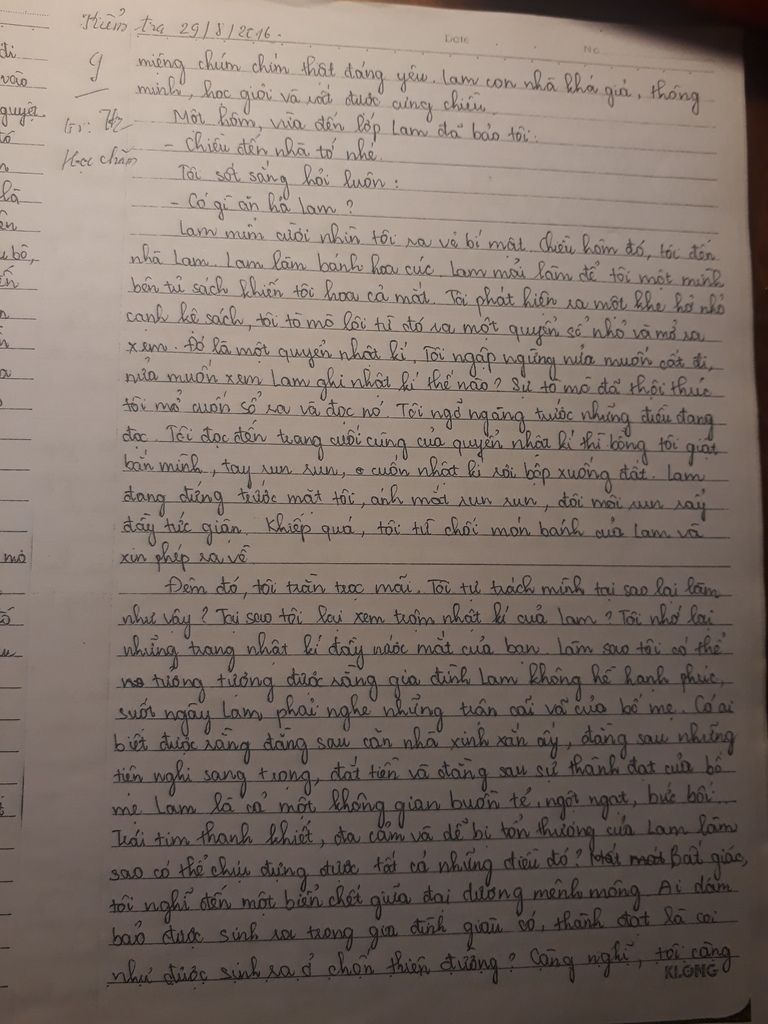 Kiểm tra 29/8/2016.
Date
No
9
miệng chúm chím thật đáng yêu. Lam con nhà khá giả, thông
minh, học giỏi và rất được cưng chiều.
Một hôm, vừa đến lớp Lam đã bảo tôi:
- Chiều đến nhà tớ nhé.
Học chăm
Tôi sốt sắng hỏi luôn:
- Có gì ăn hả Lam?
Lam mỉm cười nhìn tôi ra vẻ bí mật. Chiều hôm đó, tôi đến
nhà Lam. Lam làm bánh hoa cúc. Lam mải làm để tôi một mình
bên tủ sách khiến tôi hoa cả mắt. Tôi phát hiện ra một khe hở nhỏ
cạnh kệ sách, tôi tò mò lôi từ đó ra một quyển sổ nhỏ và mở ra
xem. Đó là một quyển nhật kí, Tôi ngập ngừng nửa muốn cất đi,
nửa muốn xem Lam ghi nhật kí thế nào? Sự tò mò đã thôi thúc
tôi mở cuốn sổ ra và đọc nó. Tôi ngỡ ngàng trước những điều đang
đọc. Tôi đọc đến trang cuối cùng của quyển nhật kí thì bỗng tôi giật
bắn mình, tay run run, cuốn nhật kí rơi bộp xuống đất. Lam
đang đứng trước mặt tôi, ánh mắt run run, đôi môi run rẩy
đầy tức giận. Khiếp quá, tôi từ chối món bánh của Lam và
xin phép ra về.
Đêm đó, tôi trằn trọc mãi. Tôi tự trách mình tại sao lại làm
như vậy? Tại sao tôi lại xem trộm nhật kí của Lam? Tôi nhớ lại
những trang nhật kí đầy nước mắt của bạn. Làm sao tôi có thể
tưởng tượng được rằng gia đình Lam không hề hạnh phúc,
suốt ngày Lam phải nghe những trận cãi vã của bố mẹ. Có ai
biết được rằng đằng sau căn nhà xinh xắn ấy, đằng sau những
tiện nghi sang trọng, đắt tiền và đằng sau sự thành đạt của bố
mẹ Lam là cả một không gian buồn tẻ, ngột ngạt, bức bối.
Trái tim thanh khiết, đa cảm và dễ bị tổn thương của Lam làm
sao có thể chịu đựng được tất cả những điều đó? Bất giác,
tôi nghĩ đến một biển chết giữa đại dương mênh mông. Ai dám
bảo được sinh ra trong gia đình giàu có, thành đạt là coi
như được sinh ra ở chốn thiên đường? Càng nghĩ, tôi càng
KLONG